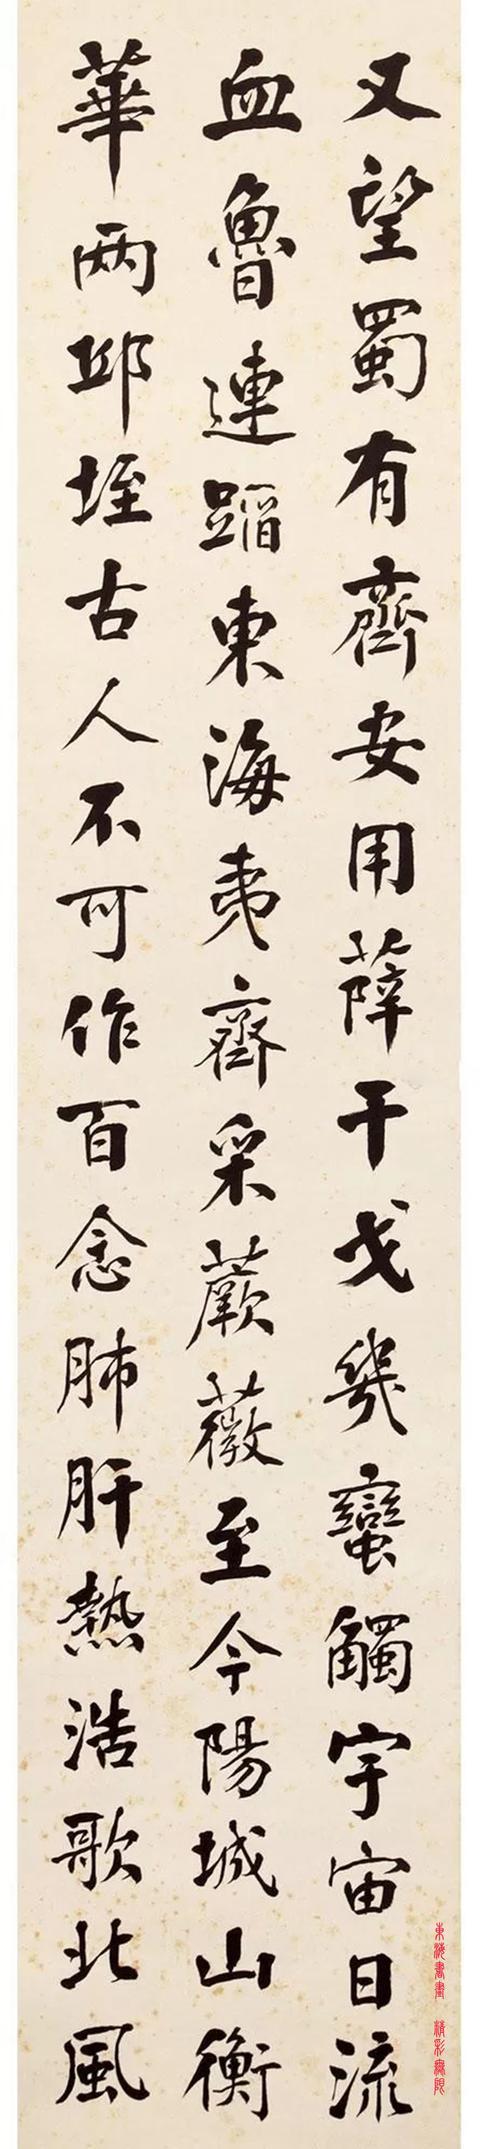 又望蜀有齊安用薛干戈幾蠻觸宇宙日流
血魯連蹈東海夷齊采蕨薇至今陽城山衡
華兩邱垤古人不可作百念肺肝熱浩歌北風
東海書畫 精彩無限